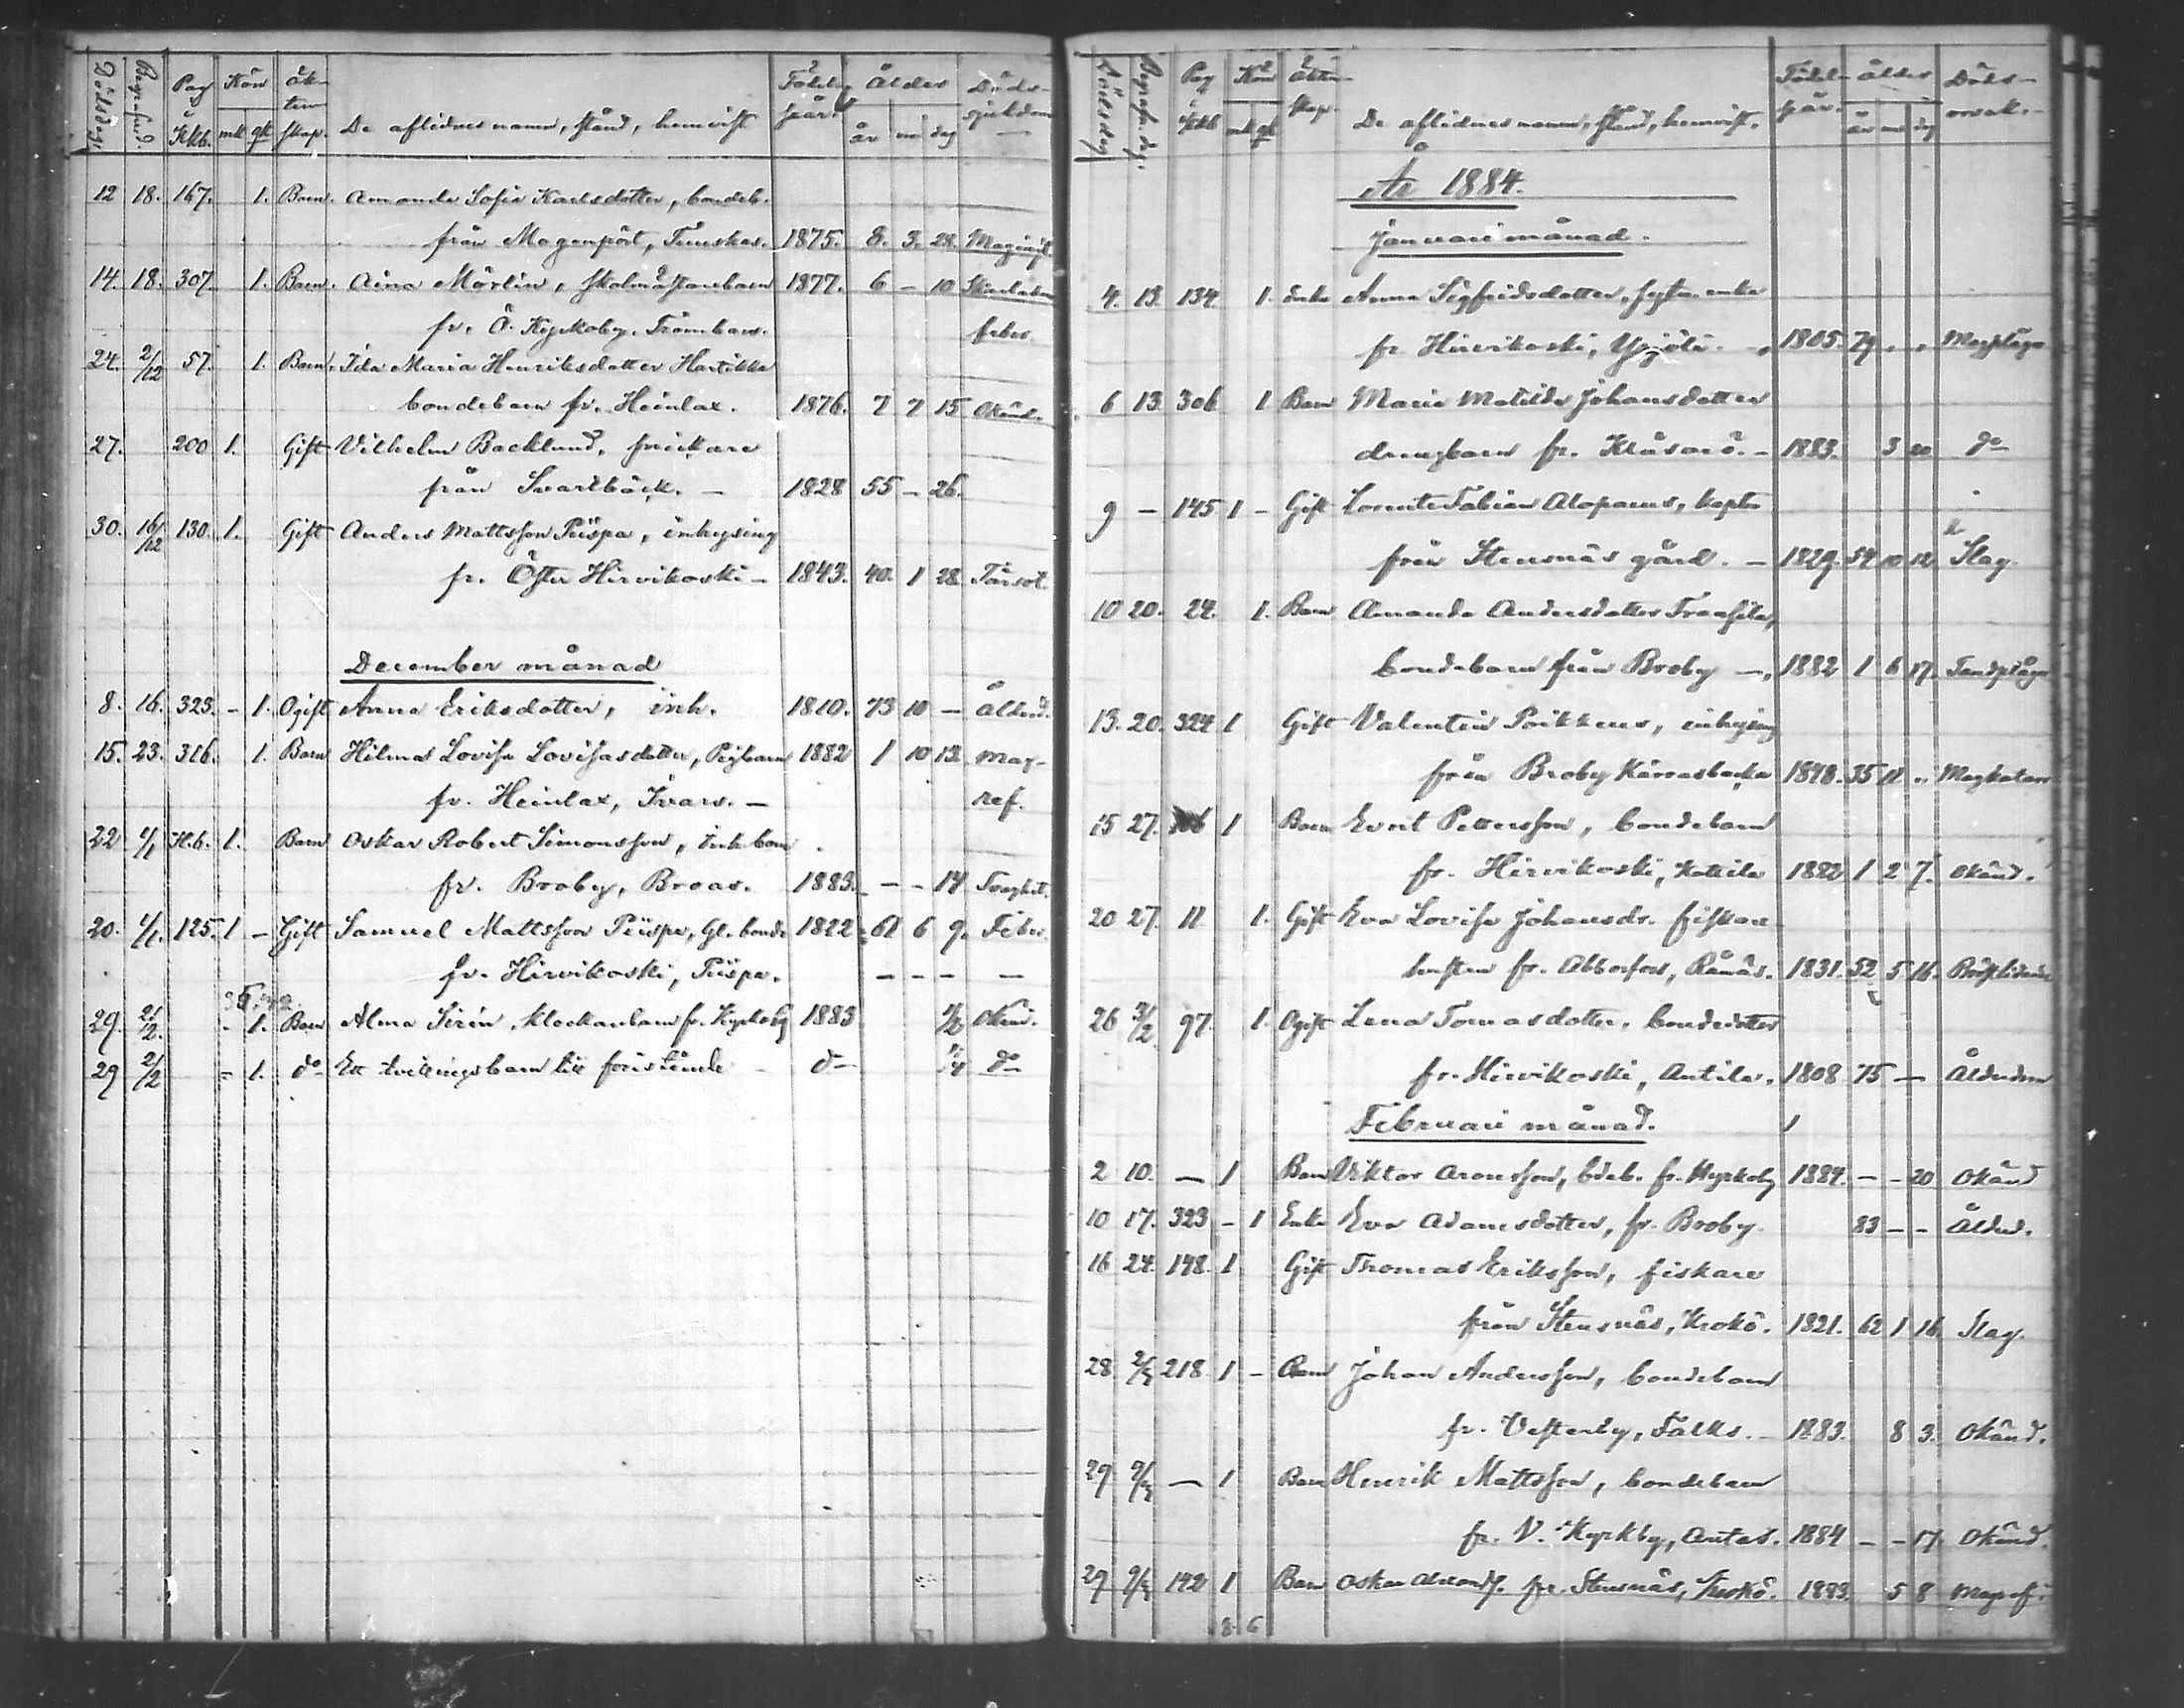 Dödsdag. Begrafnd. Pag i Kkb. Kön mk qk Äktenskap. De aflidnes namn, stånd, hemvist Födelseår. Ålder år m dag Dödssjukdom
12 18. 167. 1. Barn. Amanda Sofia Karlsdotter, bondeb.
från Magenpört, Tinuskas. 1875. 8. 3. 28.
14. 18. 307. 1. Barn. Aina Mörlin, skolmästarebarn 1877. 6 – 10 Skarlakans
fr. Ö. Kyrkoby. feber
24. 2/12 57. 1. Barn. Ida Maria Henriksdotter Hartikka
bondebarn fr. Heinlax. 1876. 7 7 15 Okänd.
27. 200 1. Gift Vilhelm Backlund,
från Svartbäck. – 1828 55 – 26.
30. 16/12 130. 1. Gift Anders Mattsson Piispa, inhysing
fr. Öster Hirvikoski – 1843. 40. 1 28 Tärsot.
December månad
8. 16. 323. – 1. Ogift Anna Eriksdotter, inh. 1810. 73 10 – Ålderd.
15. 23. 316. 1. Barn Hilma Lovisa Lovisasdotter, Pigbarn 1882 1 10 13 Mag-
fr. Heinlax, Ivars. – ref.
22 1/1 H.b. 1. Barn Oskar Robert Simonsson, inh. barn
fr. Broby, Broas. 1883. – – 14
20. 1/1. 125. 1 – Gift Samuel Mattsson Piispa, Gl. bonde 1822 61 6 9. Feber.
fr. Hirvikoski, Piispa. – – – –
29. 2/2. – 1. Barn Alma Sirén, klockarebarn fr. Kyrkoby 1883 1/2 Okänd.
29 2/2 – 1. do Ett tvillingsbarn till föristående do 1/4 do
Dödsdag Begrafn. dag. Pag i kkb Kön mk qk Äktenskap De aflidnes namn, stånd, hemvist. Födelseår. ålder år m dag Dödsorsak.
År 1884.
Januari månad.
4. 13. 134 1. Enka Anna Sigfridsdotter, sytn. enka
fr. Hirvikoski, Yrjölä. 1805. 79 „ „ Magplåga
6 13. 306 1 Barn Maria Matilda Johansdotter
drengbarn fr. Kråsarö. – 1883. 3 20 do
9 – 145 1 – Gift Lorentz Fabian Alopaeus, kapten
från Stensnäs gård. – 1829. 54 10 12 Slag.
10 20. 24. 1. Barn Amanda Andersdotter
bondebarn från Broby –, 1882 1 6 17. Tandplåga
13. 20. 324 1 Gift Valentin Poikkeus, inhysing
från Broby Kärrasbacka 1848. 35 11 „ Magkatarr
15 27. 1 Barn Evert Pettersson, bondebarn
fr. Hirvikoski, Kottila 1882 1 2 7. Okänd.
20 27. 11 1. Gift Eva Lovisa Johansdr. fiskare
hustru fr. Abborfors, Rånäs. 1831. 52 5 16. Bröstlidande
26 3/2 97 1 Ogift Lena Tomasdotter, bondedotter
fr. Hirvikoski, Antila. 1808 75 – Ålderdom
Februari månad.
2 10. – 1 Barn Viktor Aronsson, bdeb. fr. Kyrkoby 1884. – – 20 Okänd
10 17. 323 – 1 Enka Eva Adamsdotter, fr. Broby 83 – – Ålderd.
16 24. 148. 1 Gift Thomas Eriksson, fiskare
från Stensnäs, Krokö. 1821. 62 1 16 Slag.
28 2/3 218 1 – Barn Johan Andersson, bondebarn
fr. Vesterby, Falks. – 1883. 8 3. Okänd.
29 9/3 – 1 Barn Henrik Mattsson, bondebarn
fr. V. Kyrkby, Antas. 1884 – – 17 Okänd.
29 9/3 142 1 Barn Oskar fr. Stensnäs, Krokö. 1883. 5 8
8 6